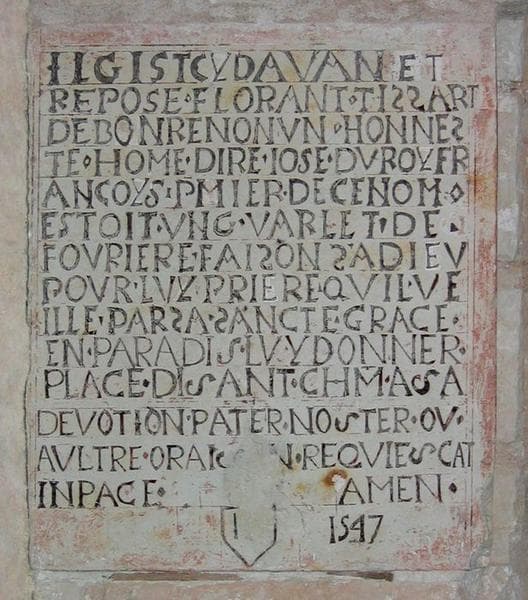 ILGISTCYDAVANET
REPOSE·FLORANT·TISSART
DEBONRENONVN·HONNES
TE·HOME·DIRE·IOSE·DVROYFR
ANCOYS·PMIER·DECENOM·
ESTOIT·VNG·VARLET·DE·
FOVRIERE·FAISONSADIEV
POVR·LVY·PRIEREQVIL·VE
ILLE·PARSA·SANCTEGRACE·
EN·PARADIS·LVYDONNER·
PLACE·DISANT·CHM·ASA
DEVOTION·PATER·NOSTER·OV·
AVLTRE·ORAI N·REQVIESCAT
INPACE· AMEN·
1547